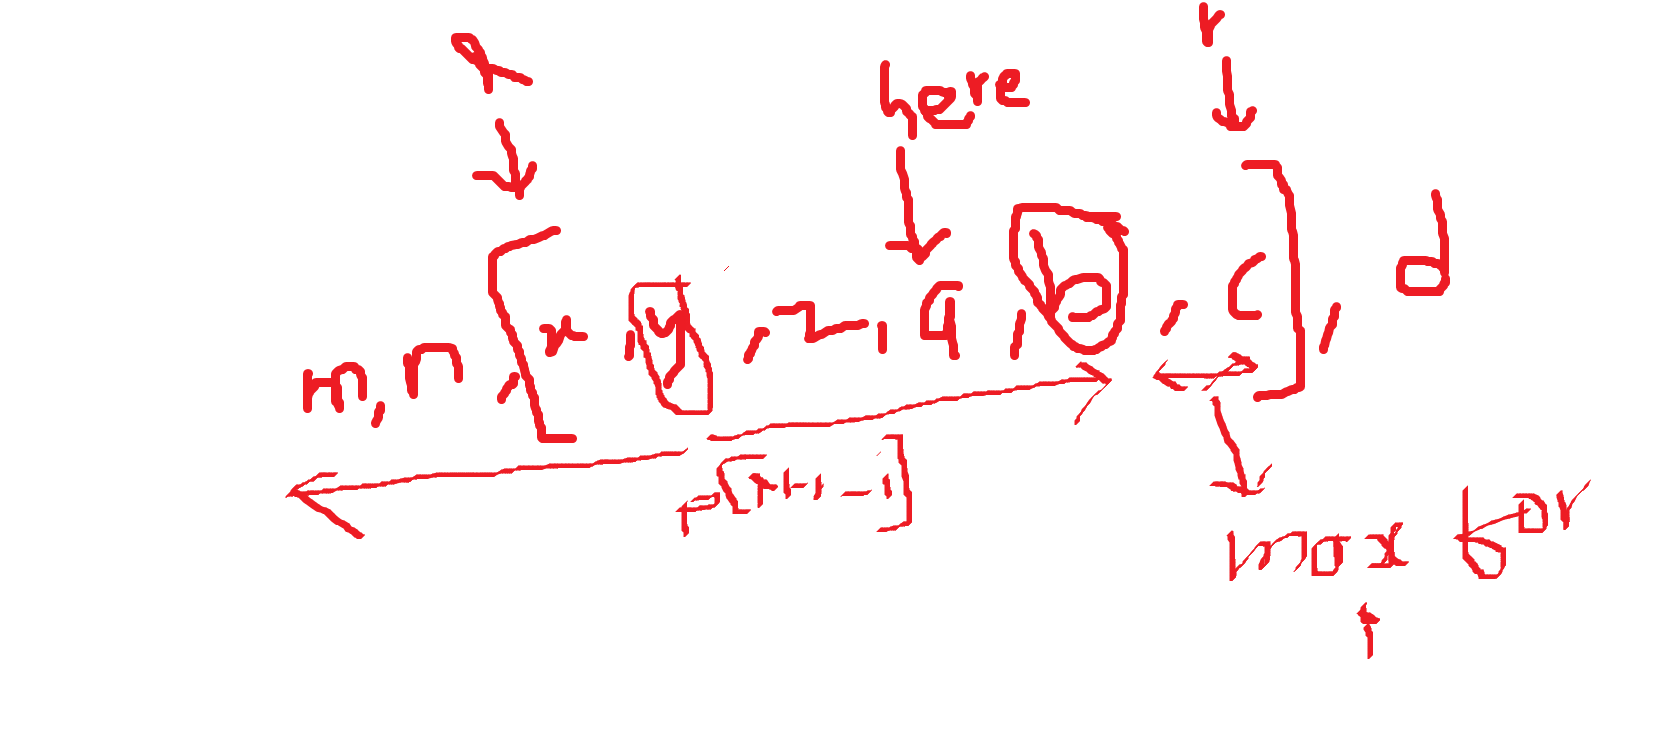 l here r
m, n, [x, y, z, a, b, c], d
p[r+1-i]
max for
i